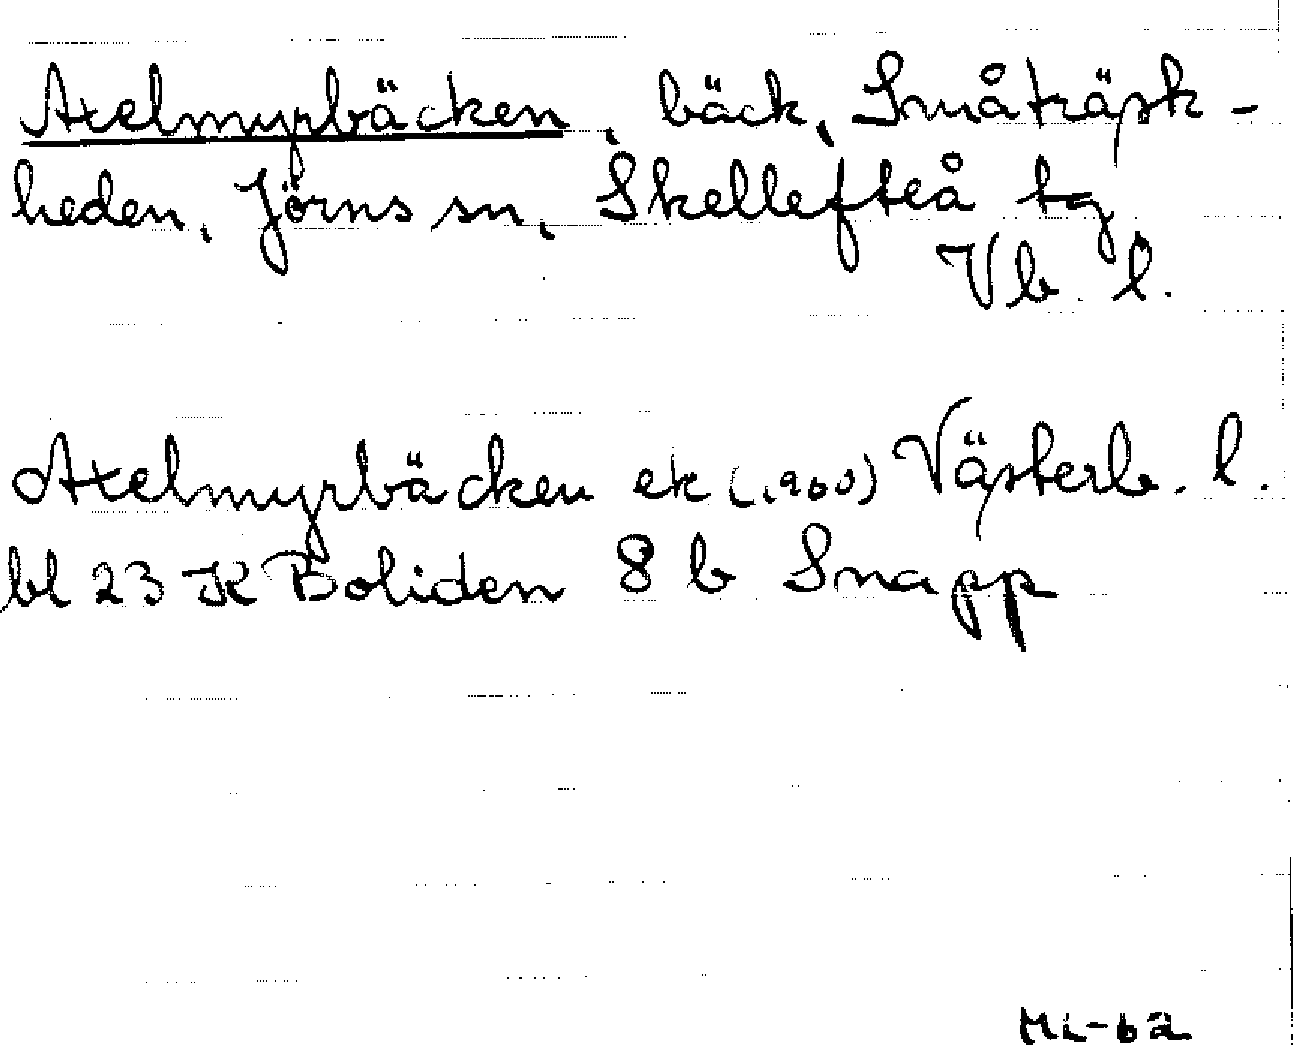 Axelmyrbäcken, bäck, Småträsk-
heden, Jörns sn, Skellefteå tg
Vb. l.
Axelmyrbäcken ek (1960) Västerb. l.
bl 23 K Boliden 8 b Snapp
ML-62